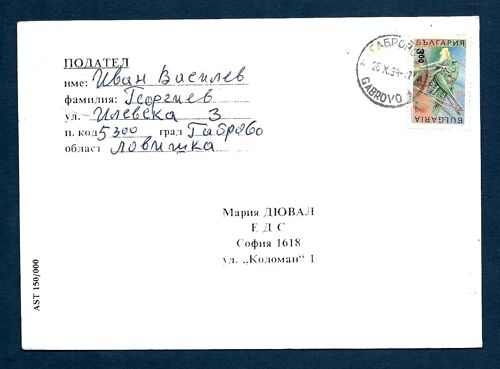 ПОДАТЕЛ
име: Иван Василев
фамилия: Георгиев
ул. Илевска 3
п. код 5300 град Габрово
област Ловишка
Мария ДЮВАЛ
Е Д С
София 1618
ул. „Коломан" 1
AST 150/000
GABROVO
БЪЛГАРИЯ
300
BULGARIA